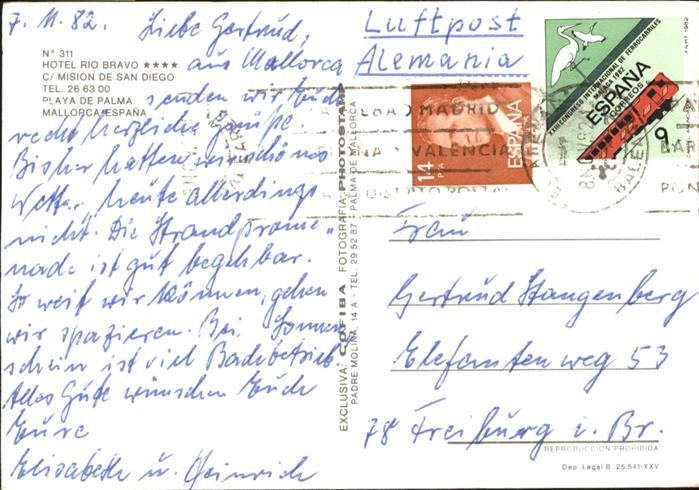 7. 11. 82. Liebe Gertrud,
Nº 311
HOTEL RIO BRAVO ★★★★
C/ MISION DE SAN DIEGO
TEL. 26 63 00
PLAYA DE PALMA
MALLORCA-ESPAÑA
aus Mallorca
senden wir Euch
recht herzliche Grüße.
Bisher hatten wir schönes
Wetter, heute allerdings
nicht. Die Strandprome-
nade ist gut begehbar.
So weit wir können, gehen
wir spazieren. Bei Sonnen
schein ist viel Badebetrieb.
Alles Gute wünschen Euch
Eure
Elisabeth u. Heinrich
EXCLUSIVA: COFIBA FOTOGRAFIA: PHOTOSTAMP
PADRE MOLINA, 14 A - TEL. 29 52 87 PALMA DE MALLORCA
Luftpost
Alemania
MADRID
VALENCIA
14 PTA
ESPAÑA
XXIII CONGRESO INTERNACIONAL DE FERROCARRILES
MALAGA 1982
ESPAÑA
CORREOS
9
F.N.M.T. 1982
Frau
Gertrud Stangenberg
Elefantenweg 53
78 Freiburg i. Br.
REPRODUCCION PROHIBIDA
Dep. Legal B. 25.541-XXV